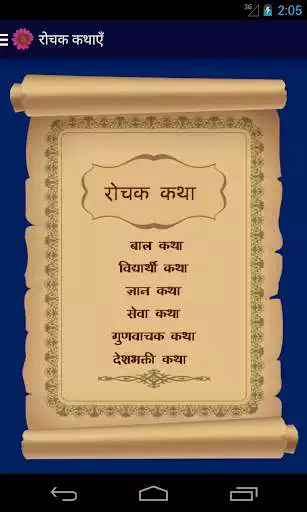 3G 2:05
रोचक कथाएँ
रोचक कथा
बाल कथा
विद्यार्थी कथा
ज्ञान कथा
सेवा कथा
गुणवाचक कथा
देशभक्ती कथा